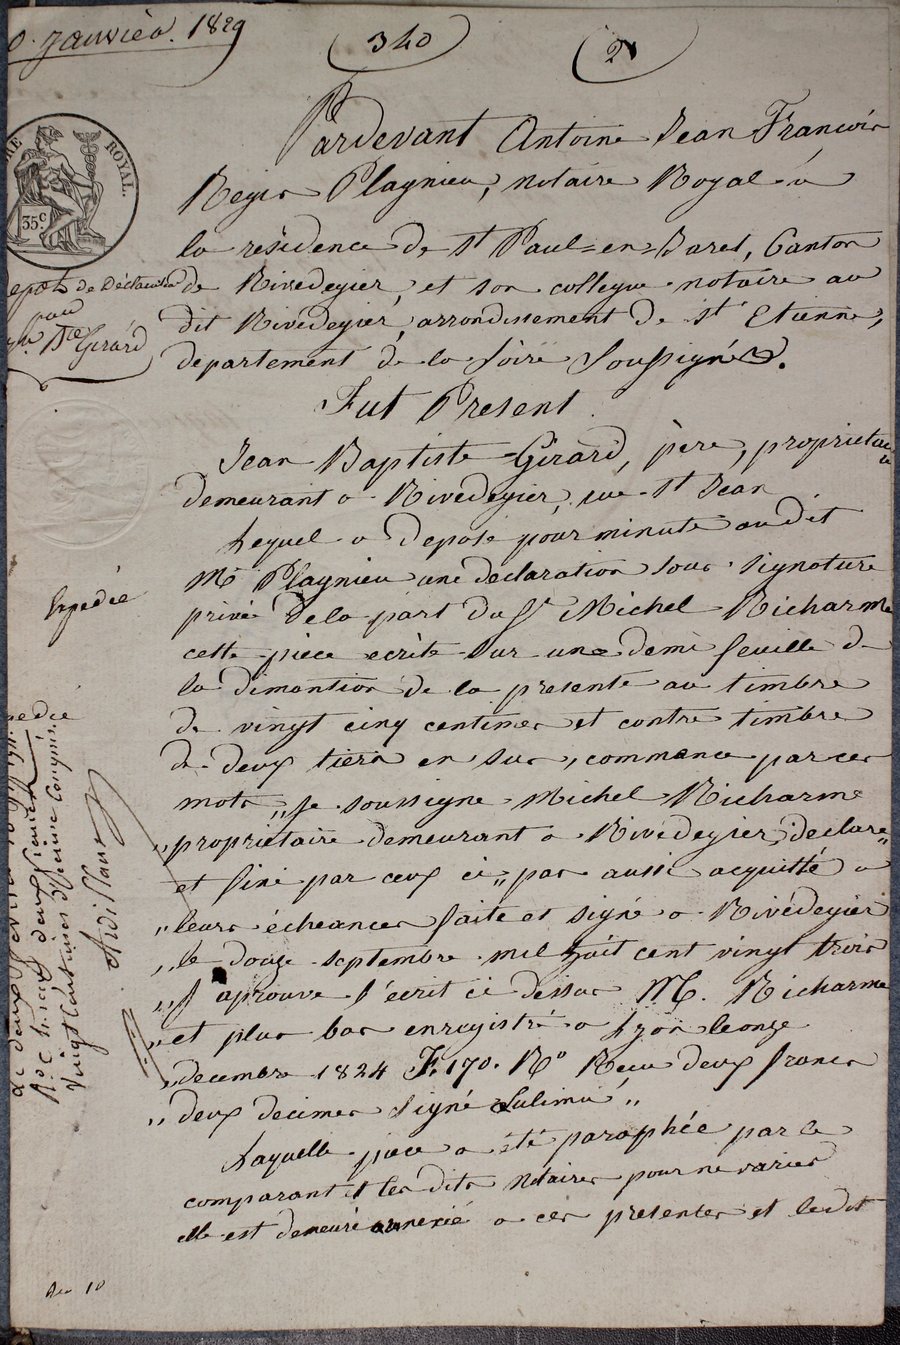 0. Janvièr. 1829
340
2
ROYAL.
35c.
epot de Déclaration
par
Jn. Bte Girard
Pardevant Antoine Jean François
Regis Plagnieu, notaire Royal à
la résidence de st Paul=en=Jaret, Canton
de Rivedegier, et son collegue notaire au
dit Rivedegier, arrondissement de st Etienne,
departement de la Loire soussignés.
Fut Present
Jean Baptiste Girard, père, proprietaire
demeurant a Rivedegier, rue st Jean
Lequel a deposé pour minute audit
Me Plagnieu une declaration sous signature
privé de la part du Sr Michel Richarme
cette piece ecrite sur une demi feuille de
la dimantion de la presente au timbre
de vingt cinq centimes et contre timbre
de deux tiers en sus, commence par ces
mots „ je soussigne Michel Richarme
„ proprietaire demeurant a Rivedegier, declare „
et fini par ceux ci „ par aussi acquitté a
„ leurs échéances faite et signé a Rivédegier
„ le douze septembre mil huit cent vingt trois
„ J'aprouve l'écrit ci dessus M. Richarme
„ et plus bas enregistré a Lyon le onze
„ decembre 1824 F. 170. Ro Recu deux francs
„ deux decimes signé
Laquelle piece a été paraphée par le
comparant et les dits notaires pour ne varier
elle est demeuré annexié a ces presentes et ledit
Expedié
pedié